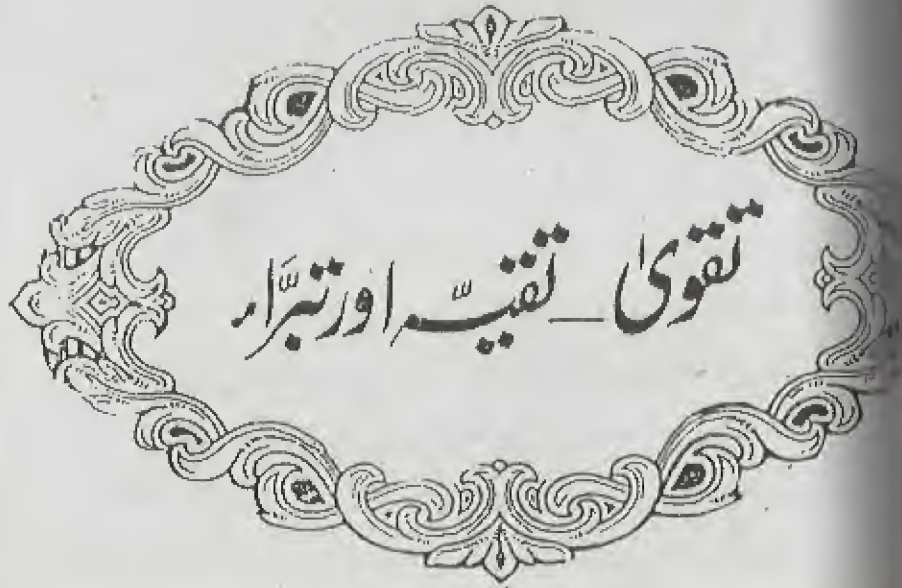 تقویٰ ـ تقیّہ اور تبرَّاء